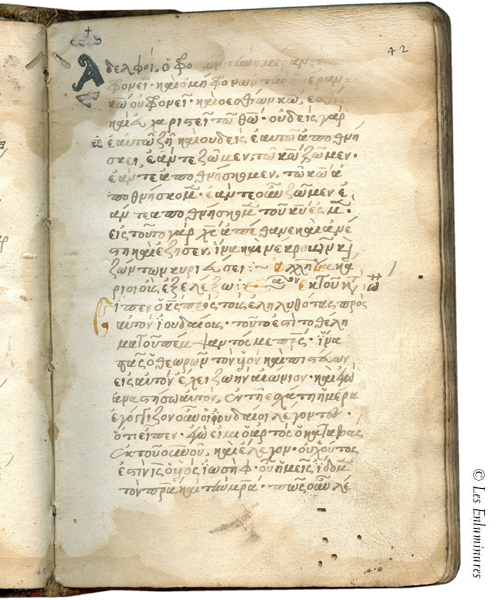 42
Ἀδελφοί, ὁ φρονῶν τὴν ἡμέραν
φρονεῖ· καὶ ὁ μὴ φρονῶν τὴν ἡμέραν,
κῶ οὐ φρονεῖ· καὶ ὁ ἐσθίων κῶ, ἐσθίει
καὶ εὐχαριστεῖ τῶ θῶ· οὐδεὶς γὰρ
ἑαυτῶ ζῆ καὶ οὐδεὶς ἑαυτῶ ἀποθνή
σκει, ἐάν τε ζῶμεν, τῶ κῶ ζῶμεν·
ἐάν τε ἀποθνήσκωμεν, τῶ κῶ ἀ
ποθνήσκομεν· ἐάν τε οὖν ζῶμεν ἐ
άν τε ἀποθνήσκωμεν τοῦ κυ ἐσμέν·
εἰς τοῦτο γὰρ χς ἀπέθανε καὶ ἀνέ
στη καὶ ἔζησεν, ἵνα καὶ νεκρῶν καὶ
ζώντων κυριεύσει :~
ριοι οὓς ἐξελέξω: ἐκ τοῦ κ ἰω
Εἶπεν ὁ κς πρὸς τοὺς ἐληλυθότας πρὸς
αὐτὸν ἰουδαίους· τοῦτό ἐστι τὸ θέλη
μα τοῦ πέμψαντός με πρς· ἵνα
πᾶς ὁ θεωρῶν τὸν υἱὸν καὶ πιστεύων
εἰς αὐτὸν ἔχει ζωὴν αἰώνιον· καὶ ἐγὼ
ἀναστήσω αὐτὸν, ἐν τῆ ἐσχάτη ἡμέρα
ἐγόγγιζον οὖν οἱ ἰουδαῖοι λέγοντες
ὅτι εἶπεν· ἐγώ εἰμι ὁ ἄρτος ὁ καταβὰς
ἐκ τοῦ οὐνοῦ, καὶ ἔλεγον· οὐχ οὗτός
ἐστιν ις ὁ υἱὸς ἰωσήφ· οὗ ἡμεῖς οἴδαμεν
τὸν πρα καὶ τὴν μρα· πῶς οὖν λέ
© Les Enluminures